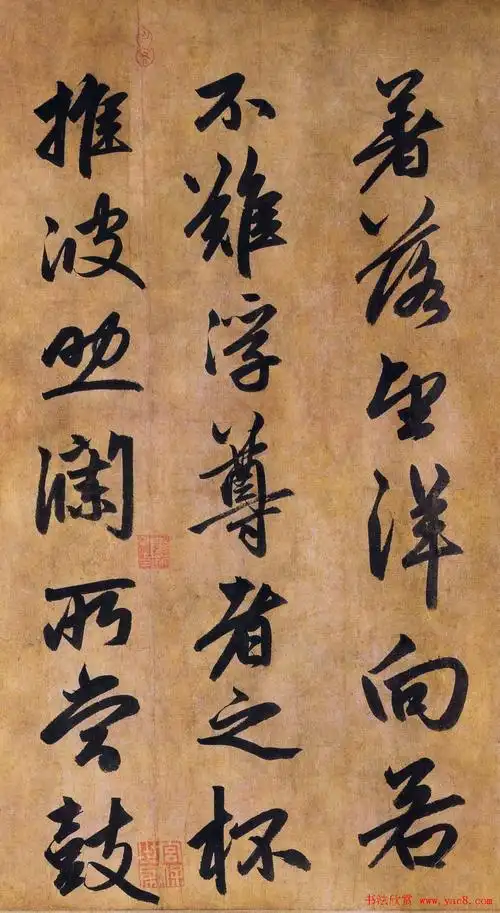 著落望洋向若
不難浮尊者之杯
推波助瀾所當鼓
宮保世家
书法欣赏 www.yac8.com